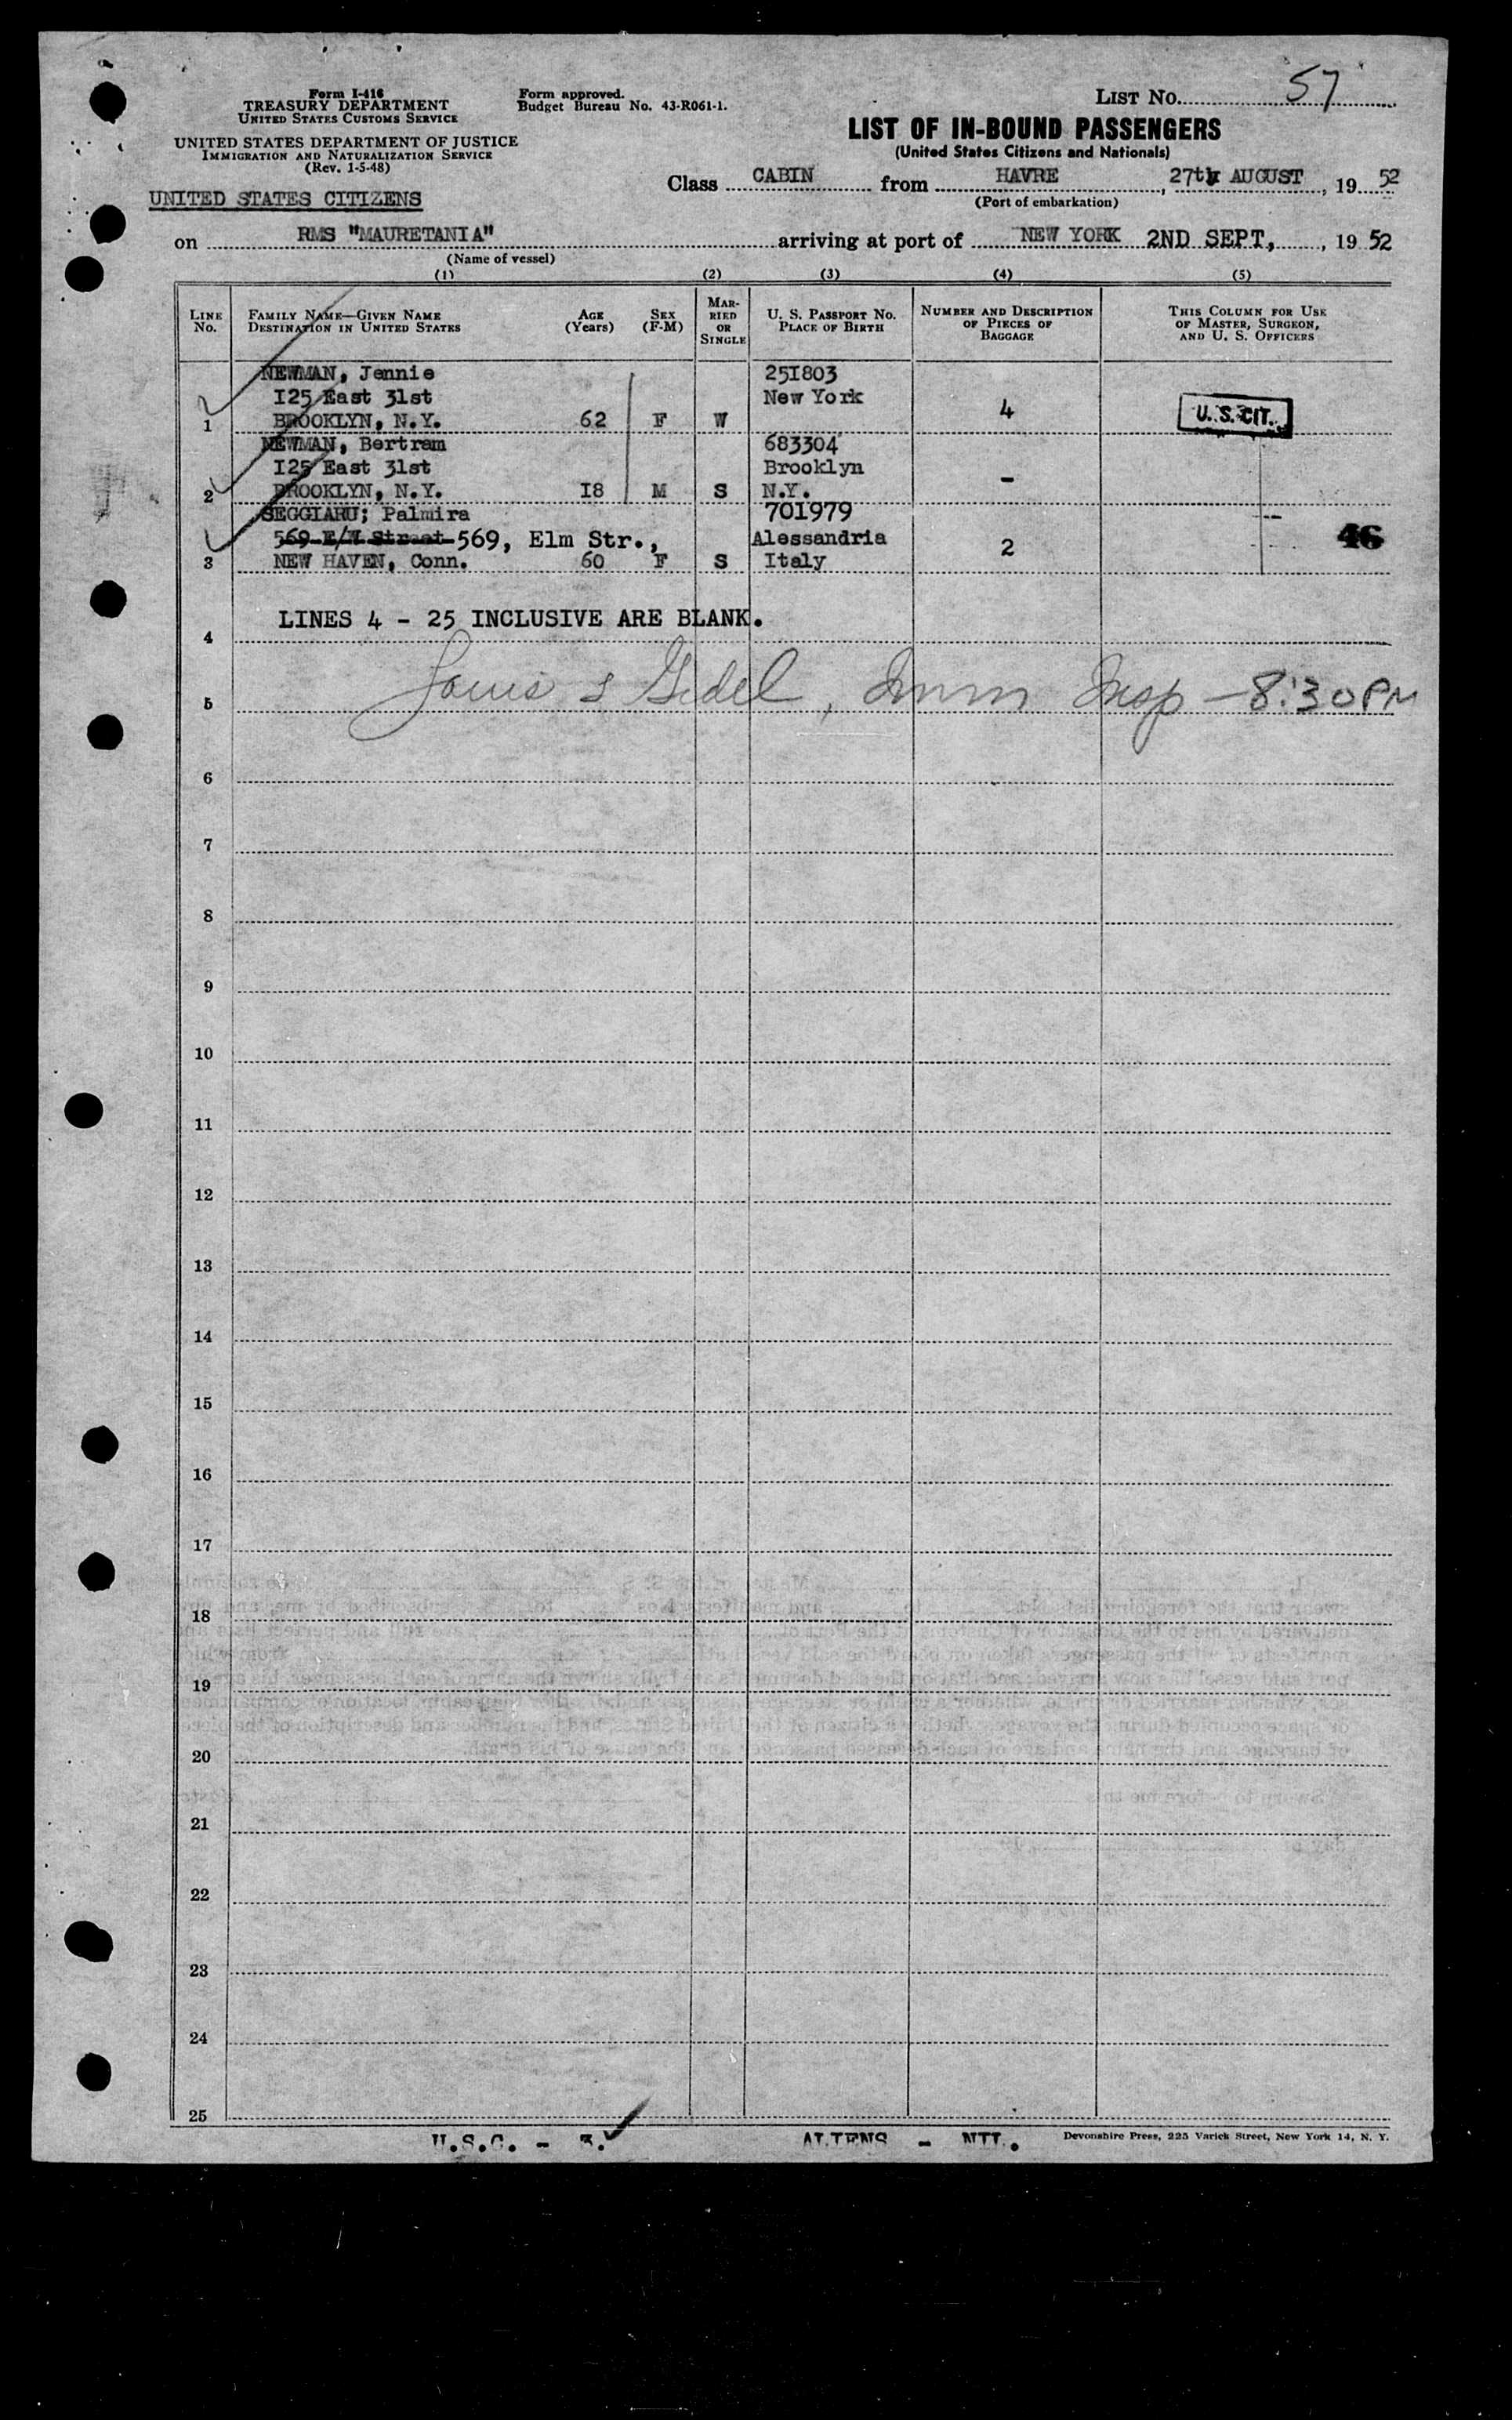 Form I-416
TREASURY DEPARTMENT
UNITED STATES CUSTOMS SERVICE
UNITED STATES DEPARTMENT OF JUSTICE
IMMIGRATION AND NATURALIZATION SERVICE
(Rev. 1-5-48)
UNITED STATES CITIZENS
Form approved.
Budget Bureau No. 43-R061-1.
LIST No. 57
LIST OF IN-BOUND PASSENGERS
(United States Citizens and Nationals)
Class CABIN from HAVRE, 27th AUGUST, 19 52
(Port of embarkation)
on RMS "MAURETANIA" arriving at port of NEW YORK 2ND SEPT, , 19 52
(Name of vessel)
(1) (2) (3) (4) (5)
LINE No. FAMILY NAME—GIVEN NAME DESTINATION IN UNITED STATES AGE (Years) SEX (F-M) MARRIED OR SINGLE U. S. PASSPORT No. PLACE OF BIRTH NUMBER AND DESCRIPTION OF PIECES OF BAGGAGE THIS COLUMN FOR USE OF MASTER, SURGEON, AND U. S. OFFICERS
NEWMAN, Jennie 251803
I25 East 31st New York
1 BROOKLYN, N.Y. 62 F W 4 U.S.CIT.
NEWMAN, Bertram 683304
I25 East 31st Brooklyn
2 BROOKLYN, N.Y. I8 M S N.Y. -
SEGGIARU; Palmira 701979
569 E/W Street 569, Elm Str., Alessandria 46
3 NEW HAVEN, Conn. 60 F S Italy 2
LINES 4 - 25 INCLUSIVE ARE BLANK.
4
Louis S Gidel, Imm Insp - 8:30PM
5
6
7
8
9
10
11
12
13
14
15
16
17
18
19
20
21
22
23
24
25
U.S.C. - 3. ALIENS - NIL.
Devonshire Press, 225 Varick Street, New York 14, N. Y.